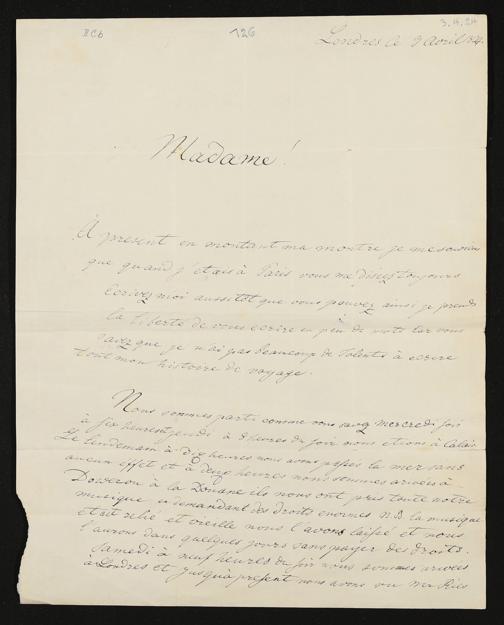 126
3.4.24
Londres le 3 avril 24.
Madame!
À present en montant ma montre je me souviens
que quand j'etais à Paris vous me disiez toujours
Ecrivez moi aussitôt que vous pouvez ainsi je prends
la liberté de vous ecrire un peu de mots car vous
savez que je n'ai pas beaucoup de talents à ecrire
tout mon histoire de voyage.
Nous sommes parti comme vous savez mercredi soir
à six heures et jeudi à 8 heures du soir nous etions à Calais
Le lendemain à dix heures nous avons passés la mer sans
aucun effet et à deux heures nous sommes arrivées à
Douvron à la Douane ils nous ont pris toute notre
musique en demandant des droits enormes N.B. la musique
etait relié et vieille nous l'avons laissée et nous
l'aurons dans quelques jours sans payer des droits.
Samedi à neuf heures du soir nous sommes arrivés
à Londres et jusqu'à present nous avons vu Mr Ries